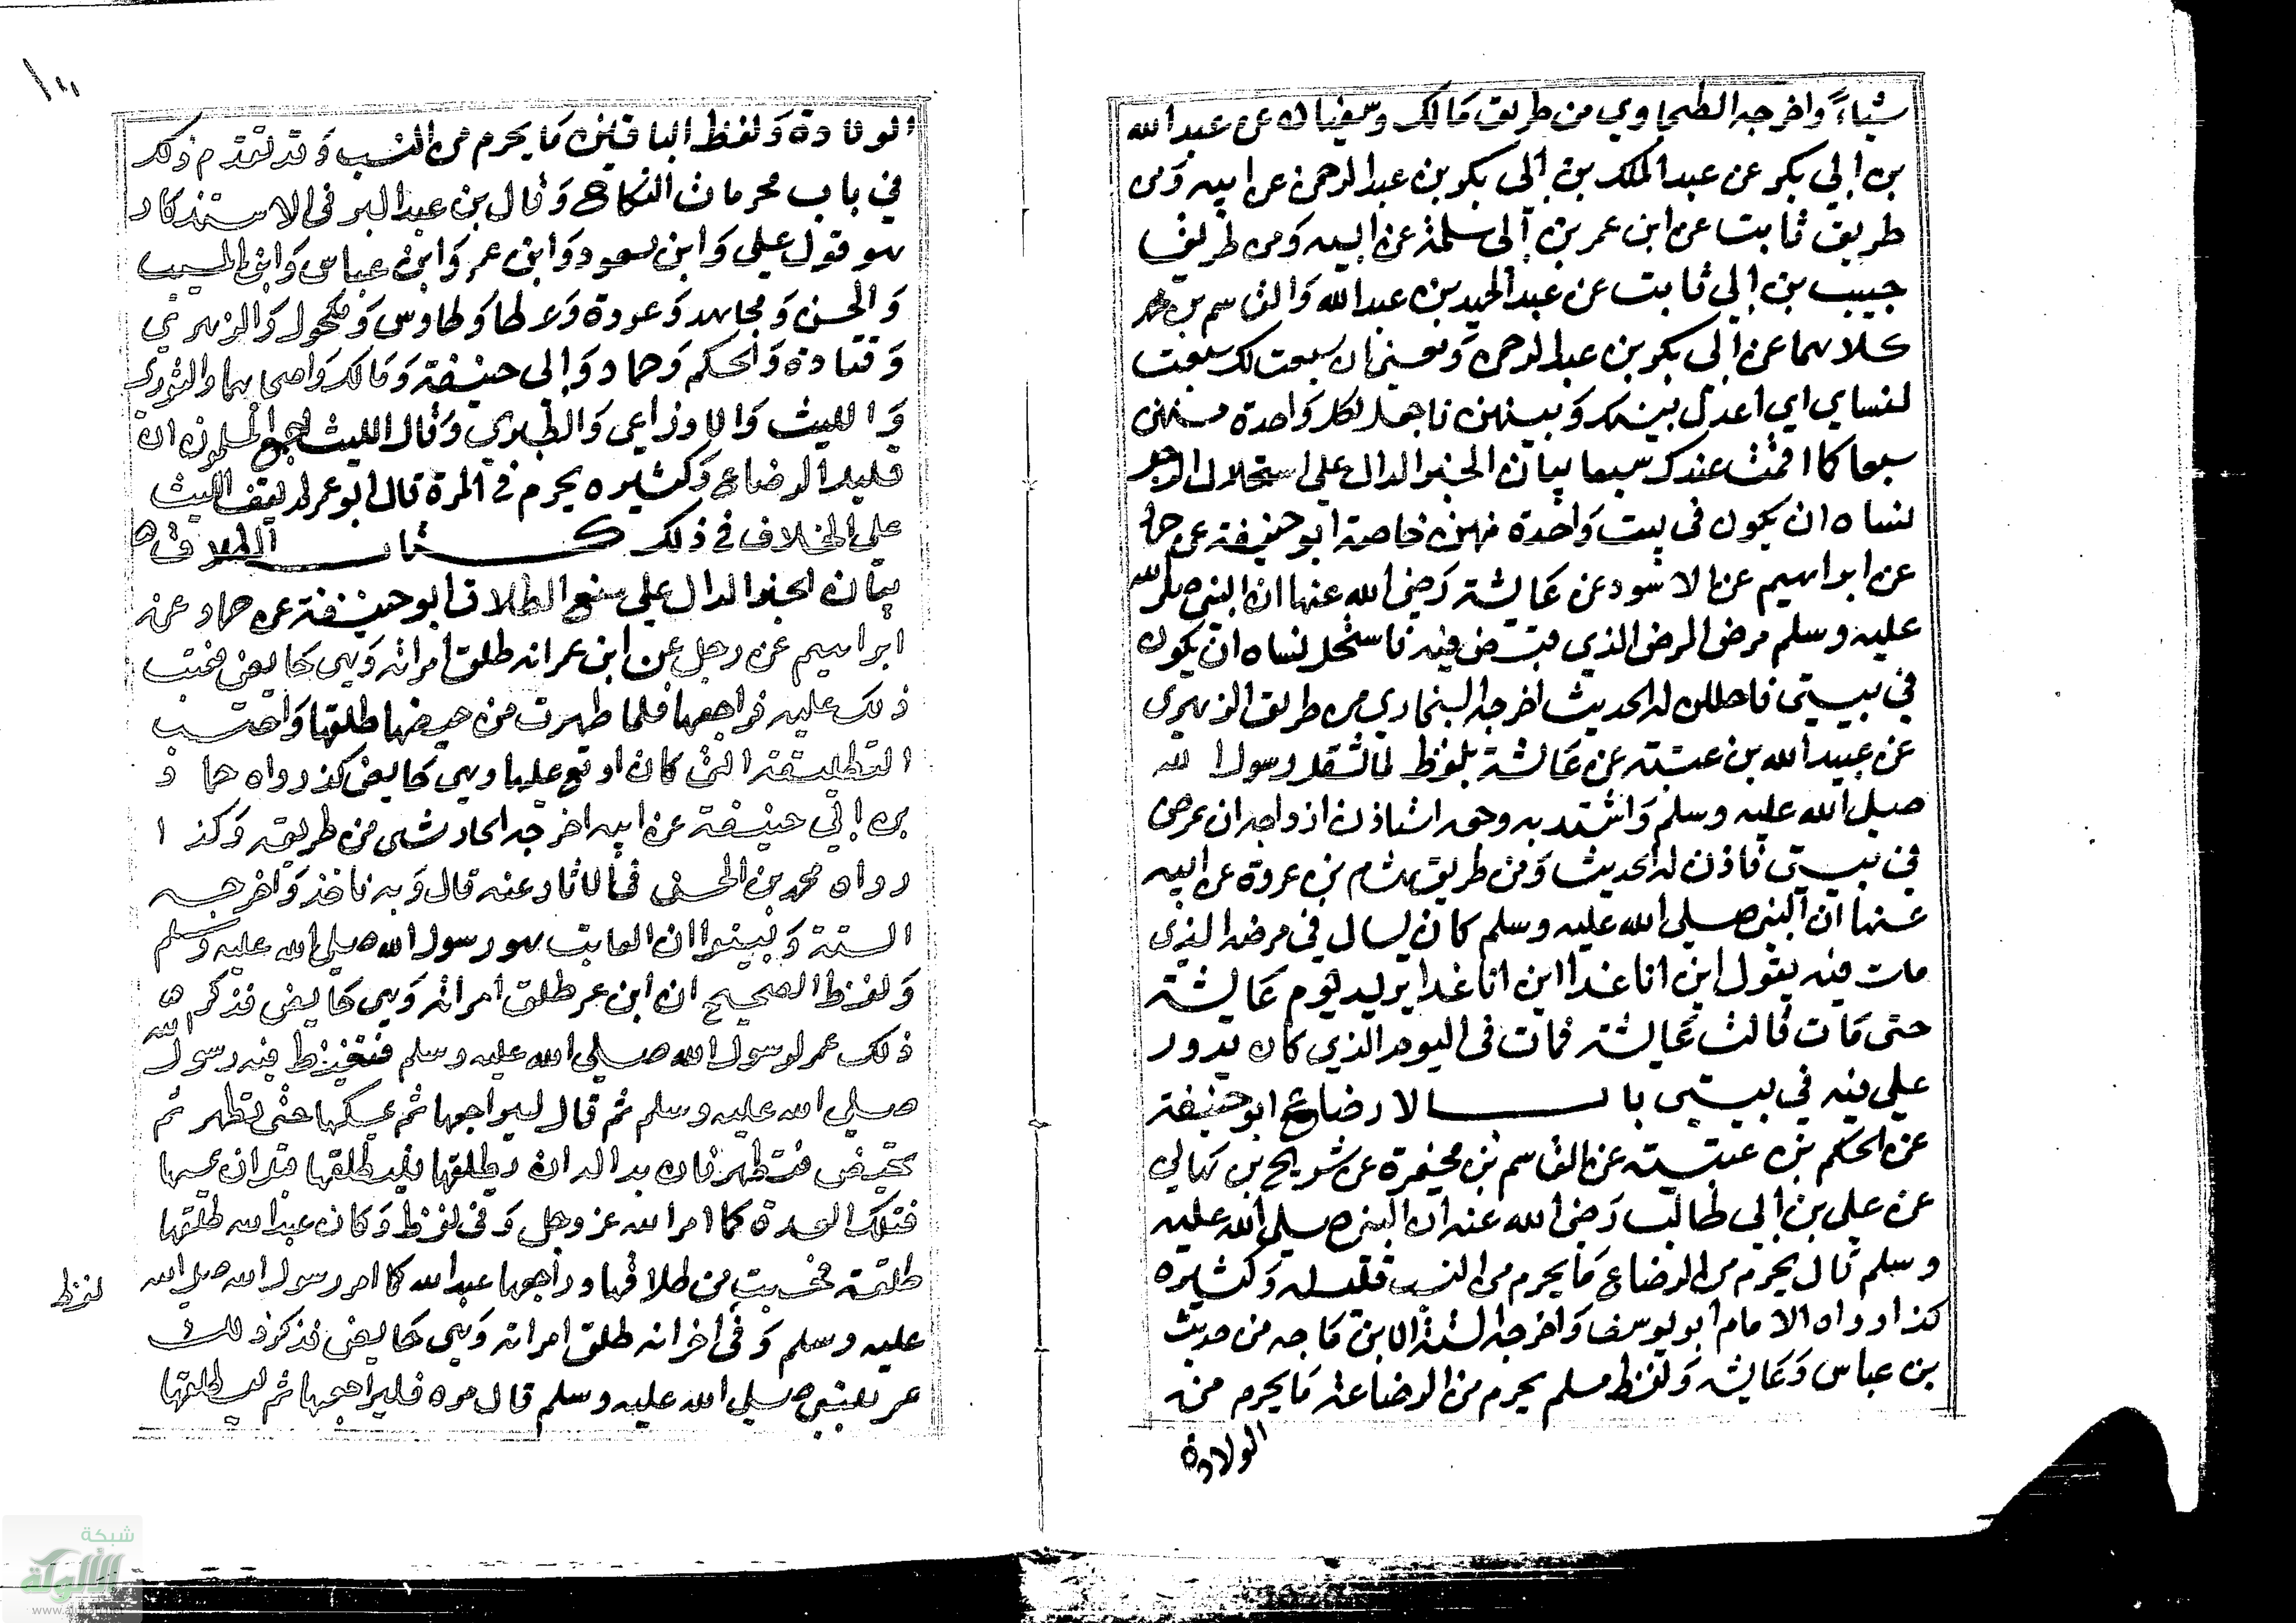 شياءً واخرجه الطحاوي من طريق مالك وسفيان عن عبد الله
بن ابي بكر عن عبد الملك بن ابي بكر بن عبد الرحمن عن ابيه ومن
طريق ثابت عن ابن عمر بن ابي سلمة عن ابيه ومن طريق
حبيب بن ابي ثابت عن عبد الحميد بن عبد الله والقاسم بن محمد
كلاهما عن ابي بكر بن عبد الرحمن ومعنى ان سبعت لك سبعت
لنساي اي اعدل بينك وبينهن ناجعل لكل واحدة منهن
سبعا كما اقمت عندك سبعا بيان الخبر الدال على استحلال الرجل
نساه ان يكون في بيت واحدة منهن خاصة ابو حنيفة عن حما
عن ابراهيم عن الاسود عن عايشة رضي الله عنها ان النبي صلى الله
عليه وسلم مرض المرض الذي قبض فيه فاستحل نساه ان يكون
في بيتي فاحللن له الحديث اخرجه البخاري من طريق الزهري
عن عبيد الله بن عتبة عن عايشة بلفظ لما ثقل رسول الله
صلى الله عليه وسلم واشتد به وجعه استاذن ازواجه ان يمرض
في بيتي فاذن له الحديث ومن طريق هشام بن عروة عن ابيه
عنها ان النبي صلى الله عليه وسلم كان يسال في مرضه الذي
مات فيه يقول اين انا غدا اين انا غدا يريد يوم عايشة
حتى مات قالت عايشة فمات في اليوم الذي كان يدور
علي فيه في بيتي باب الارضاع ابو حنيفة
عن الحكم بن عتيبة عن القاسم بن مخيمرة عن شريح بن هاني
عن علي بن ابي طالب رضي الله عنه ان النبي صلى الله عليه
وسلم قال يحرم من الرضاع ما يحرم من النسب قليله وكثيره
كذا رواه الامام ابو يوسف واخرجه الستة الا بن ماجه من حديث
بن عباس وعايشة ولفظ مسلم يحرم من الرضاعة ما يحرم من
الولادة
الولادة ولفظ الباقين ما يحرم من النسب وقد تقدم ذلك
في باب محرمات النكاح وقال بن عبد البر في الاستذكار
هو قول علي وابن مسعود وابن عمر وابن عباس وابن المسيب
والحسن ومجاهد وعروة وعطا وطاوس ومكحول والزهري
وقتادة والحكم وحماد وابي حنيفة ومالك واصحابهما والثوري
والليث والاوزاعي والطبري وقال الليث اجمع المسلمون ان
قليل الرضاع وكثيره يحرم في المرة قال ابو عمر لم يقف الليث
على الخلاف في ذلك كتاب الطلاق
بيان الخبر الدال على منع الطلاق ابو حنيفة عن حماد عن
ابراهيم عن رجل عن ابن عمر انه طلق امراته وهي حايض فعتب
ذلك عليه فراجعها فلما طهرت من حيضها طلقها واحتسب
التطليقة التي كان اوقع عليها وهي حايض كذ رواه حما د
بن ابي حنيفة عن ابيه اخرجه الحارثي من طريقه وكذ ا
رواه محمد بن الحسن في الاثار عنه قال وبه ناخذ واخرجه
الستة وبينوا ان العاتب هو رسول الله صلى الله عليه وسلم
ولفظ الصحيح ان ابن عمر طلق امراته وهي حايض فذكر
ذلك عمر لرسول الله صلى الله عليه وسلم فتغيظ فيه رسول الله
صلى الله عليه وسلم ثم قال ليراجعها ثم يمسكها حتى تطهر ثم
تحيض فتطهر فان بدا له ان يطلقها فليطلقها قبل ان يمسها
فتلك العدة كما امر الله عز وجل وفي لفظ وكان عبد الله طلقها
طلقة فحسبت من طلاقها وراجعها عبد الله كما امر رسول الله صلى الله
لفظ
عليه وسلم وفي اخر انه طلق امراته وهي حايض فذكر ذلك
عمر للنبي صلى الله عليه وسلم قال مره فليراجعها ثم ليطلقها
شبكة
الألوكة